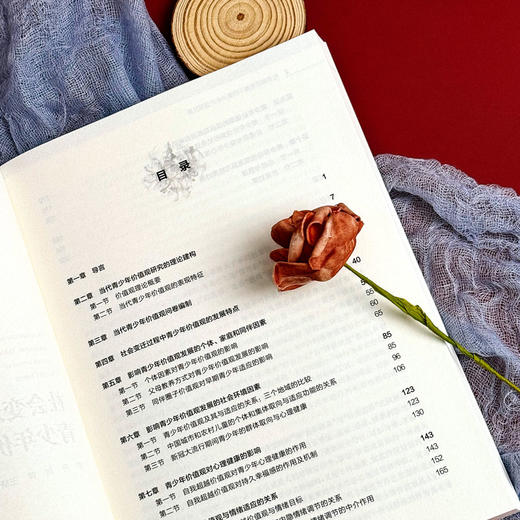 目 录
第一章 导言 1
第二章 当代青少年价值观研究的理论建构 7
第一节 价值观理论概要
第二节 当代青少年价值观的表现特征
第三章 当代青少年价值观问卷编制 40
第四章 社会变迁过程中青少年价值观的发展特点 65
第五章 影响青少年价值观发展的个体、家庭和同伴因素 85
第一节 个体因素对青少年价值观的影响 85
第二节 父母教养方式对青少年价值观的影响 96
第三节 同伴圈子价值观对早期青少年适应的影响 106
第六章 影响青少年价值观发展的社会环境因素 123
第一节 青少年价值观及其与适应的关系:三个地域的比较 123
第二节 中国城市和农村儿童的个体和集体取向与适应功能的关系 124
第三节 新冠大流行期间青少年的群体取向与心理健康 130
第七章 青少年价值观对心理健康的影响 143
第一节 自我超越价值观对青少年心理健康的作用 143
第二节 自我超越价值观对持久幸福感的作用及机制 152
观与情绪适应的关系 165
价值观与情绪目标
内隐情绪调节的关系
情绪调节的中介作用